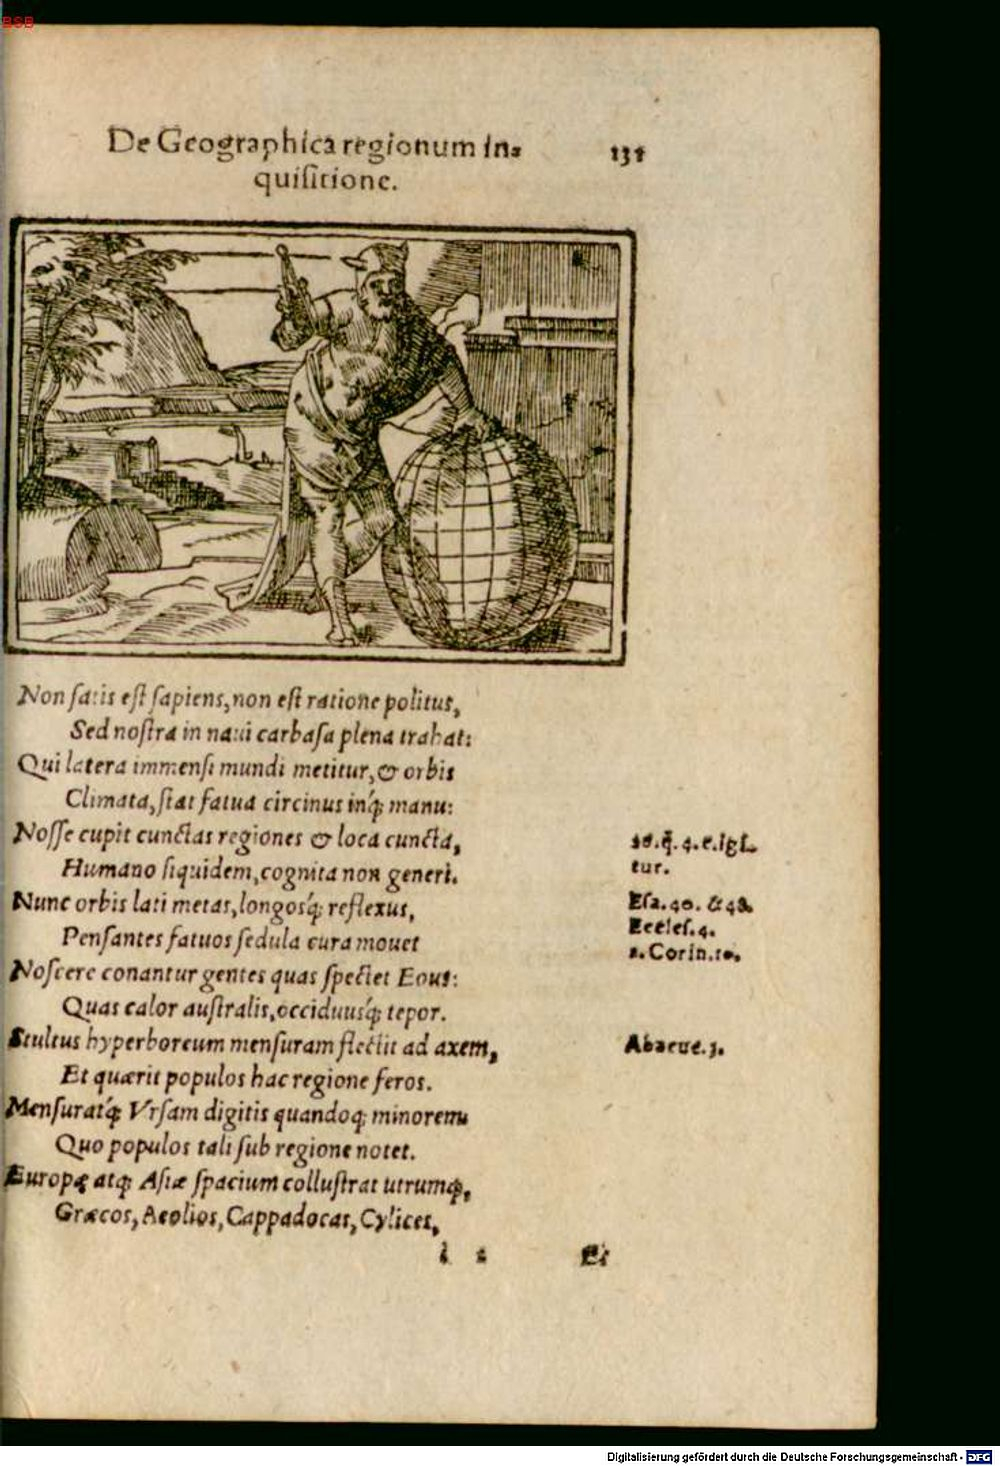 BSB
De Geographica regionum in⸗
quiſitione.
131
Non ſatis eſt ſapiens, non eſt ratione politus,
Sed noſtra in naui carbaſa plena trahat:
Qui latera immenſi mundi metitur, & orbis
Climata, ſtat fatua circinus inq́; manu:
Noſſe cupit cunctas regiones & loca cuncta,
Humano ſiquidem, cognita non generi.
Nunc orbis lati metas, longosq́; reflexus,
Penſantes fatuos ſedula cura mouet
Noſcere conantur gentes quas ſpectet Eous:
Quas calor auſtralis, occiduusq́; tepor.
Stultus hyperboreum menſuram flectit ad axem,
Et quærit populos hac regione feros.
Menſuratq́; Vrſam digitis quandoq; minorem
Quo populos tali ſub regione notet.
Europę atq; Aſiæ ſpacium colluſtrat utrumq;,
Græcos, Aeolios, Cappadocas, Cylices,
26.q̃.4.c.igi⸗
tur.
Eſa.40. & 48.
Eccleſ.4.
Corin.10.
Abacuc.3.
Et
Digitalisierung gefördert durch die Deutsche Forschungsgemeinschaft - DFG